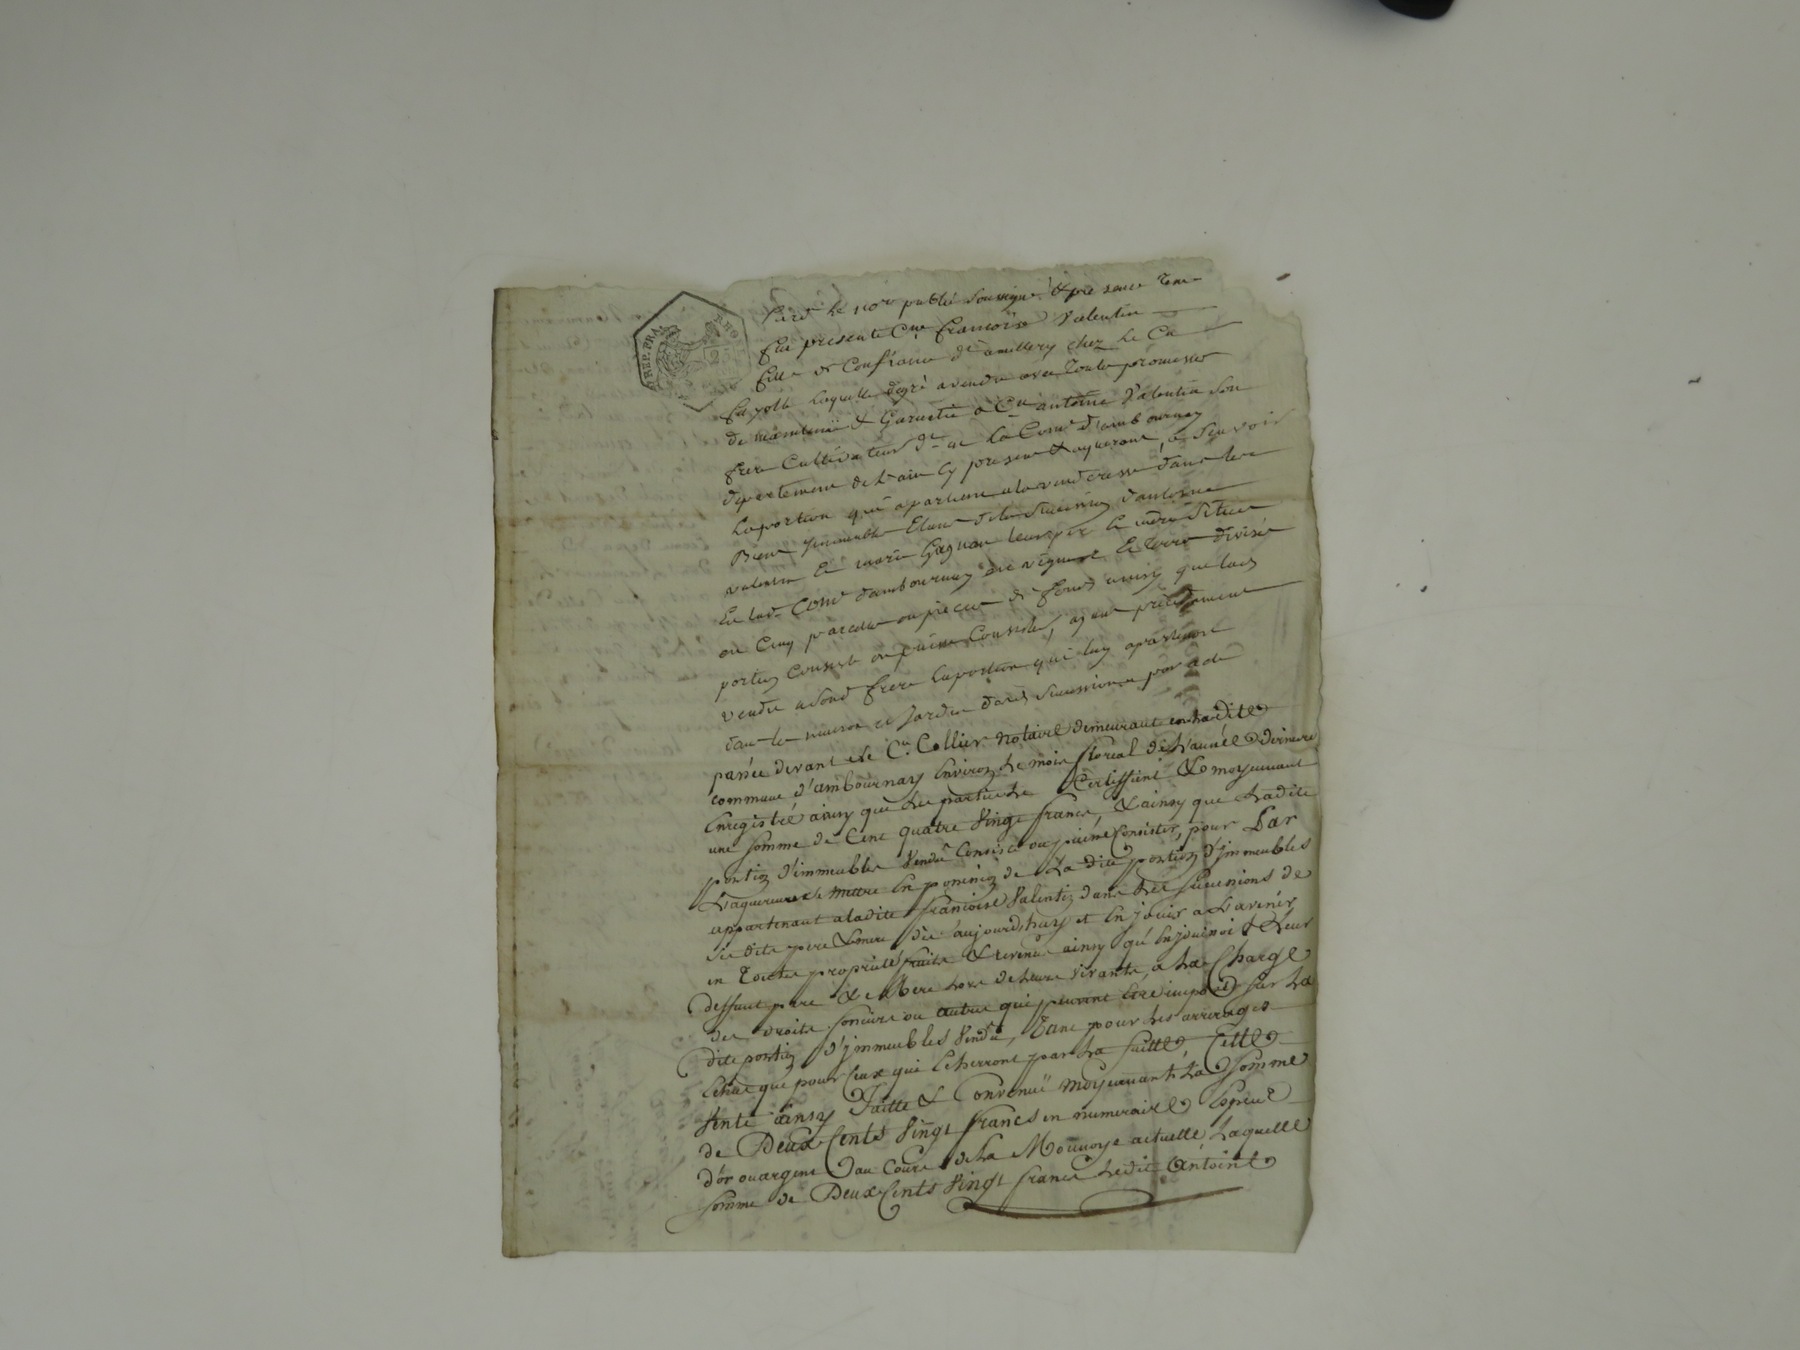 REP. FRA.
25
Pard. le no.re publié soussigné & pre sence Tem.
fut presente C.ne francoise Valentin
fille de Confiance d.te amillery chez le C.n
fayolle laquelle degré a vendu avec Toute promesse
de maintenüe & Garentie a C.n antoine Valentin son
frere Cultivateur d.t a la Com.e d'ambournay
departement de L'ain Cy present & aquereur, a Scavoir
Laportion qui apartient ala venderesse dans les
Biens Immeubles Etant dela Succession d'antoine
valentin Et marie Gagneau leurs pere Et mere Situés
En lad. Com.e d'ambournay en vigne Et terre divisé
en Cinq parcelles ou pieces de fonds ainsy que lad.
portion Consiste ou puisse Consister, ayant precedament
vendu a sond. frere laportion qui luy apartenoit
dans la maison et Jardin dud. Succession par acte
passée devant le C.n Collier notaire demeurant en La dite
commune d'ambournay Environ le mois floreal de L'année derniere
Enregistré ainsy que les parties le Certiffient & moyennant
une somme de Cent quatre Vingt francs, & ainsy que Ladite
portion d'immeubles Vendu Consiste ou puisse Consister, pour Par
L'aquereur se mettre En possession de La dite portion d'immeubles
appartenant aladite francoise Valentin dans Les successions de
ses dits pere & mere dès aujourd'huy et En jouir a L'avenir
en Toute propriété fruits & revenus ainsy qu'En jouissoit Leur
deffunt pere & Mere Lors de Leurs vivants, a La Charge
des droits fonciers ou autres qui peuvent Etre imposé sur La
dite portion d'immeubles Vendu, Tant pour Les arrerages
Echus que pour Ceux qui Echerront par La suitte, Cette
Vente ainsy faitte & Convenuë moyennant La somme
de Deux Cents Vingt francs en numeraire Espece
d'or ou argent au Cours de La Monnoye actuelle Laquelle
somme de Deux Cents Vingt francs Ledit Antoine